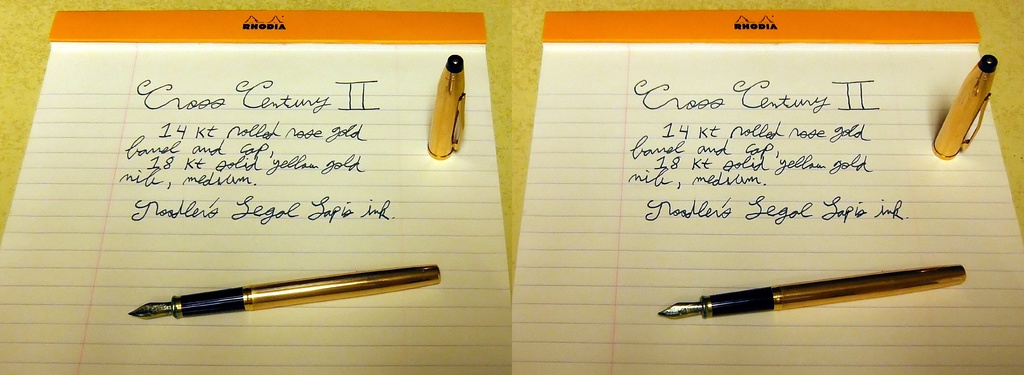 RHODIA
Cross Century II
14 kt rolled rose gold
barrel and cap,
18 kt solid yellow gold
nib, medium.
Noodler's Legal Lapis ink.
RHODIA
Cross Century II
14 kt rolled rose gold
barrel and cap,
18 kt solid yellow gold
nib, medium.
Noodler's Legal Lapis ink.